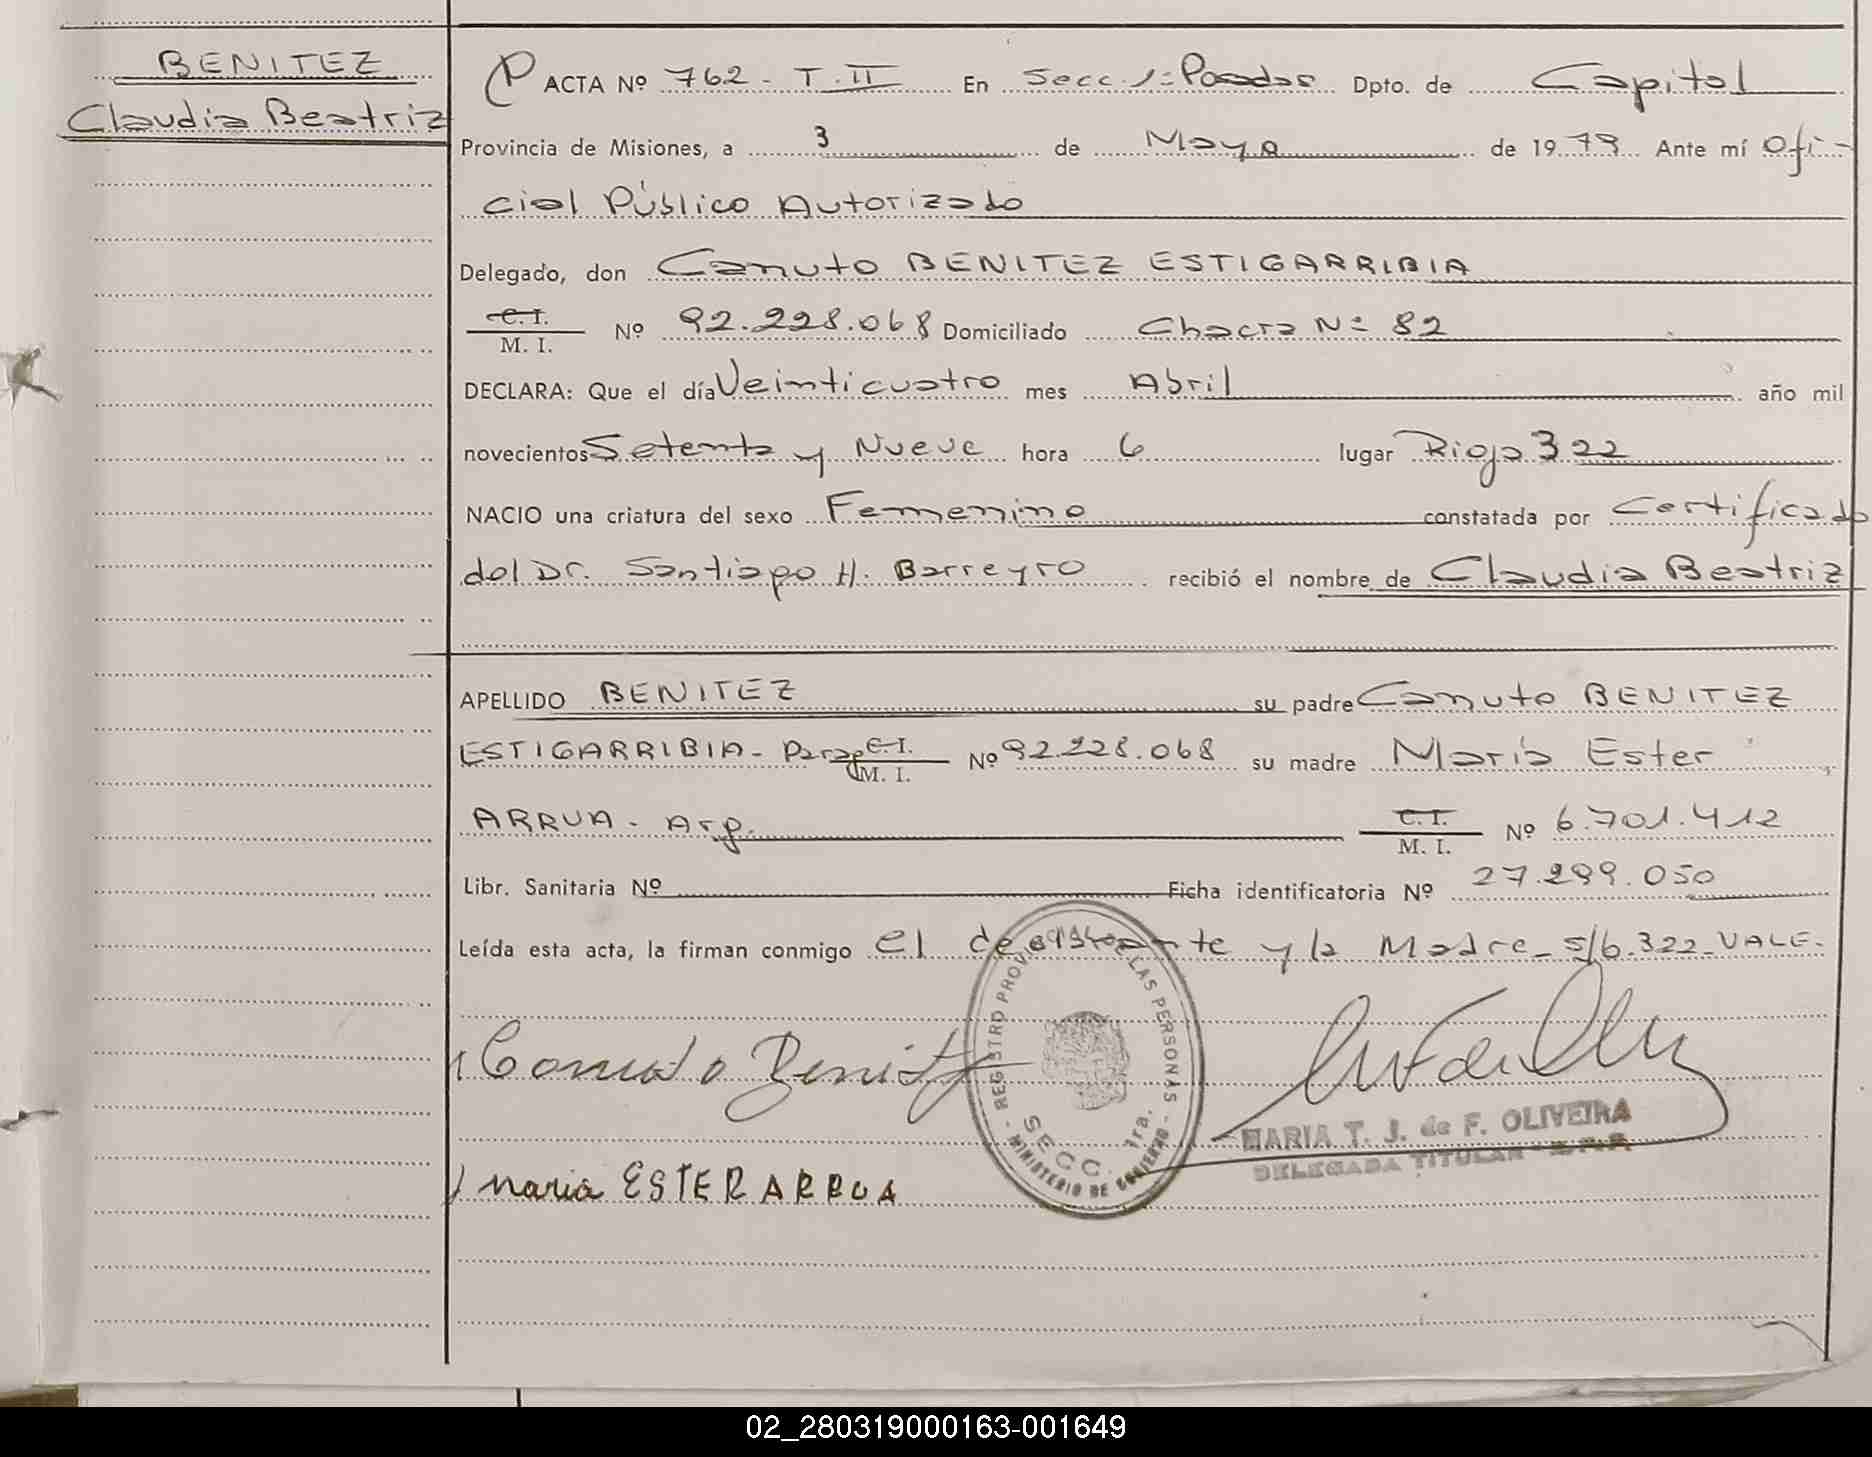 BENITEZ
Claudia Beatriz
ACTA Nº 762 - T. II En Secc. 1= Posadas Dpto. de Capital
Provincia de Misiones, a 3 de Mayo de 1979 Ante mí Ofi-
cial Público Autorizado
Delegado, don Canuto BENITEZ ESTIGARRIBIA
C. I.
M. I. Nº 92.228.068 Domiciliado Chacra N= 82
DECLARA: Que el día Veinticuatro mes Abril año mil
novecientos Setenta y Nueve hora 6 lugar Rioja 322
NACIO una criatura del sexo Femenino constatada por Certificado
del Dr. Santiago H. Barreyro recibió el nombre de Claudia Beatriz
APELLIDO BENITEZ su padre Canuto BENITEZ
ESTIGARRIBIA - Parag C. I.
M. I. Nº 92.228.068 su madre María Ester
ARRUA - Arg. C. I.
M. I. Nº 6.701.412
Libr. Sanitaria Nº Ficha identificatoria Nº 27.299.050
Leída esta acta, la firman conmigo el declarante y la Madre - s/b. 322 - VALE -
Canuto Benitez
REGISTRO PROVINCIAL DE LAS PERSONAS
SECC. 1ra.
MINISTERIO DE GOBIERNO
MARIA T. J. de F. OLIVEIRA
DELEGADA TITULAR
Maria ESTER ARRUA
02_280319000163-001649